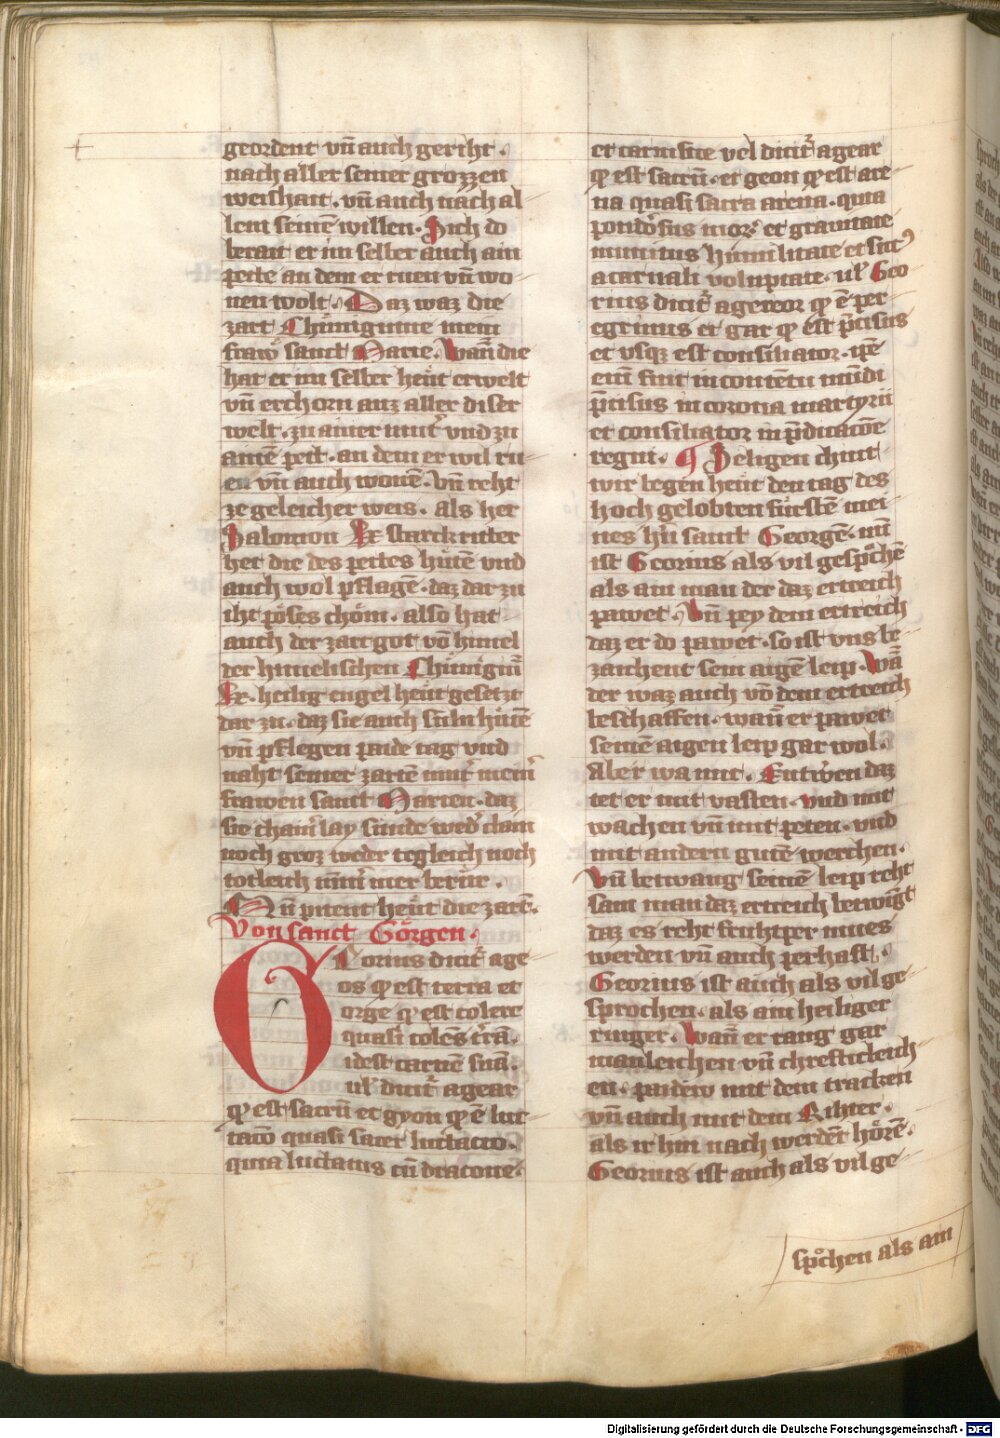 geordent vn̄ auch geriht.
nach aller seiner grozzen
weishait. vn̄ auch nach al
lem seinē willen. Sich do
berait er im selber auch ain
pette an dem er ruen vn̄ wo-
nen wolt. Daz waz die
zart Chüniginne mein
fraẘ sanct Marie. Wann̄ die
hat er im selber heüt erwelt
vn̄ erchorn auz aller diser
welt. zu ainer mut̄ vnd zu
ainē pett. an dem er wil ru-
en vn̄ auch wonē. Vn̄ reht
ze geleicher weis. als her
Salomon lx starck ritter
het die des pettes hütē vnd
auch wol pflagē. daz dar zu
iht pöses chöm. also hat
auch der zart got vō himel
der himelischen Chünigiñ
lx. heilig engel heüt gesetzt
dar zu. daz sie auch süln hütē
vn̄ pflegen paide tag vnd
naht seiner zartē mut̄ meiñ
frawen sanct Marien. daz
sie chaiñlay sünde wed̄ clain
noch groz weder tegleich noch
totleich nim̄ mer berür.
Nu pitent heüt die zart.
Von sanct Görgen.
GEorius dicit̄ a ge-
os qͥ est terra et
orge qͥ est colere
quasi colēs t̄rā.
id est carnē suā.
ul̄ dicit̄ a gear
qͥ est sacrū et gyon qͥ ē luc-
tatō quasi sacer luctatio.
quia luctatus cū dracone.
et carnifice vel dicit̄ a gear
qͥ est sacrū. et geon qͥ est are-
na quasi sacra arena. quia
pondōsus mor. et grauitate
minutus humilitate et sicc᷒
a carnali voluptate. ul̄ Geo
rius dicit̄ a gereor qͥ ē per
egrinus et gar qͥ est p̄cisus
et vsqz est consiliator. ip̄e
enī fuit in contētu mūdi
p̄cisus in corona martyrii
et consiliator in p̄dicatōe
regni. ¶ Heligen chint
wir begen heüt den tag des
hoch gelobten fürstē mei-
nes hn̄ sanct Georgē. nū
ist Georius als vil gesp̊chē
als ain man der daz ertreich
pawet. Vn̄ pey dem ertreich
daz er do pawet. so ist vns be-
zaichent sein aigē leip. wā
der waz auch vō dem ertreich
beschaffen. wan̄ er pawet
seinē aigen leip gar wol.
Aber wa mit. Entrẘen daz
tet er mit vasten. vnd mit
wachen vn̄ mit peten. vnd
mit andern gutē werchen.
Vn̄ betwang seinē leip reht
sam man daz ertreich betwīgt
daz es reht fruhtper mues
werden vn̄ auch perhaft.
Georius ist auch als vil ge-
sprochen. als ain heiliger
ringer. Wan̄ er rang gar
manleichen vn̄ christicleich-
en. paidew mit dem tracken
vn̄ auch mit dem Rihter.
als ir hin nach werdēt hörē.
Georius ist auch als vil ge-
sp̊chen als ain
Digitalisierung gefördert durch die Deutsche Forschungsgemeinschaft - DFG